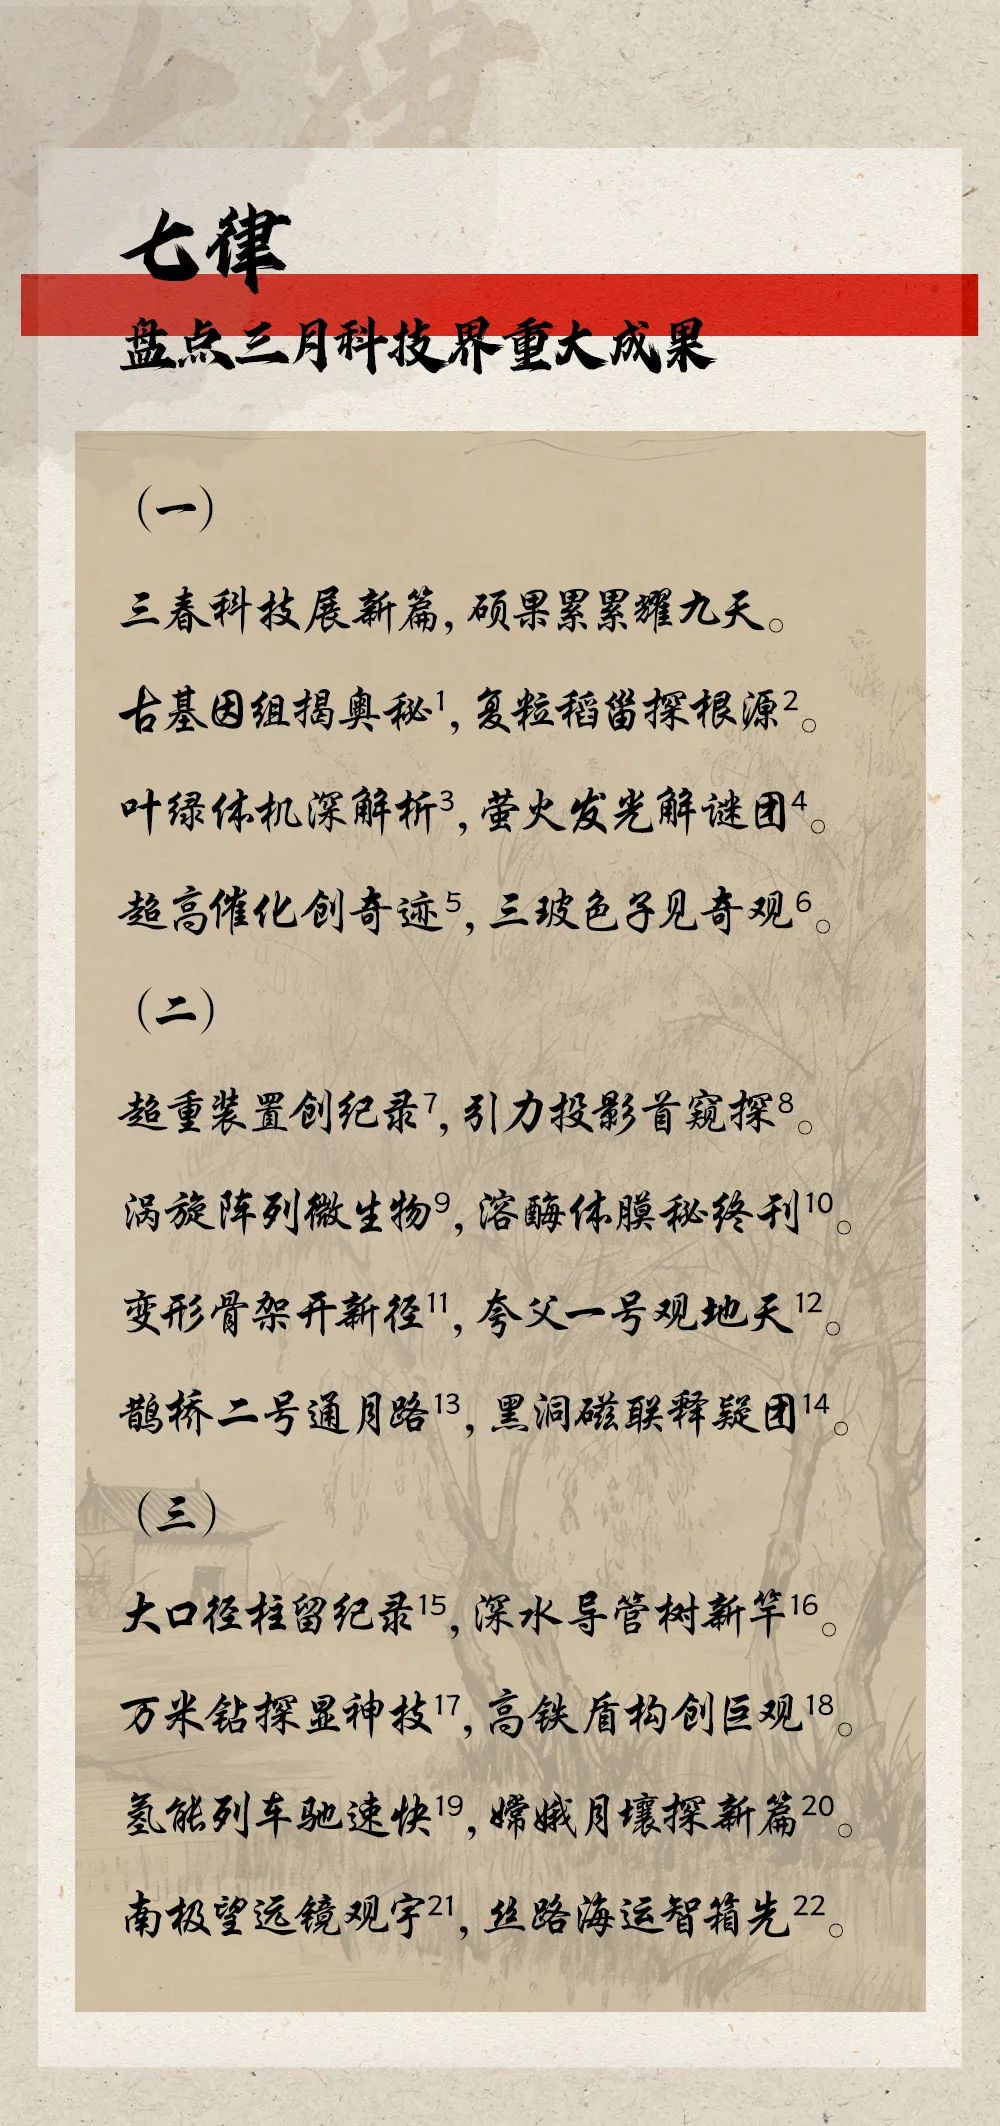 七律
七律
盘点三月科技界重大成果
（一）
三春科技展新篇，硕果累累耀九天。
古基因组揭奥秘1，复粒稻甾探根源2。
叶绿体机深解析3，萤火发光解谜团4。
超高催化创奇迹5，三玻色子见奇观6。
（二）
超重装置创纪录7，引力投影首窥探8。
涡旋阵列微生物9，溶酶体膜秘终刊10。
变形骨架开新径11，夸父一号观地天12。
鹊桥二号通月路13，黑洞磁联释疑团14。
（三）
大口径柱留纪录15，深水导管树新竿16。
万米钻探显神技17，高铁盾构创巨观18。
氢能列车驰速快19，嫦娥月壤探新篇20。
南极望远镜观宇21，丝路海运智箱先22。